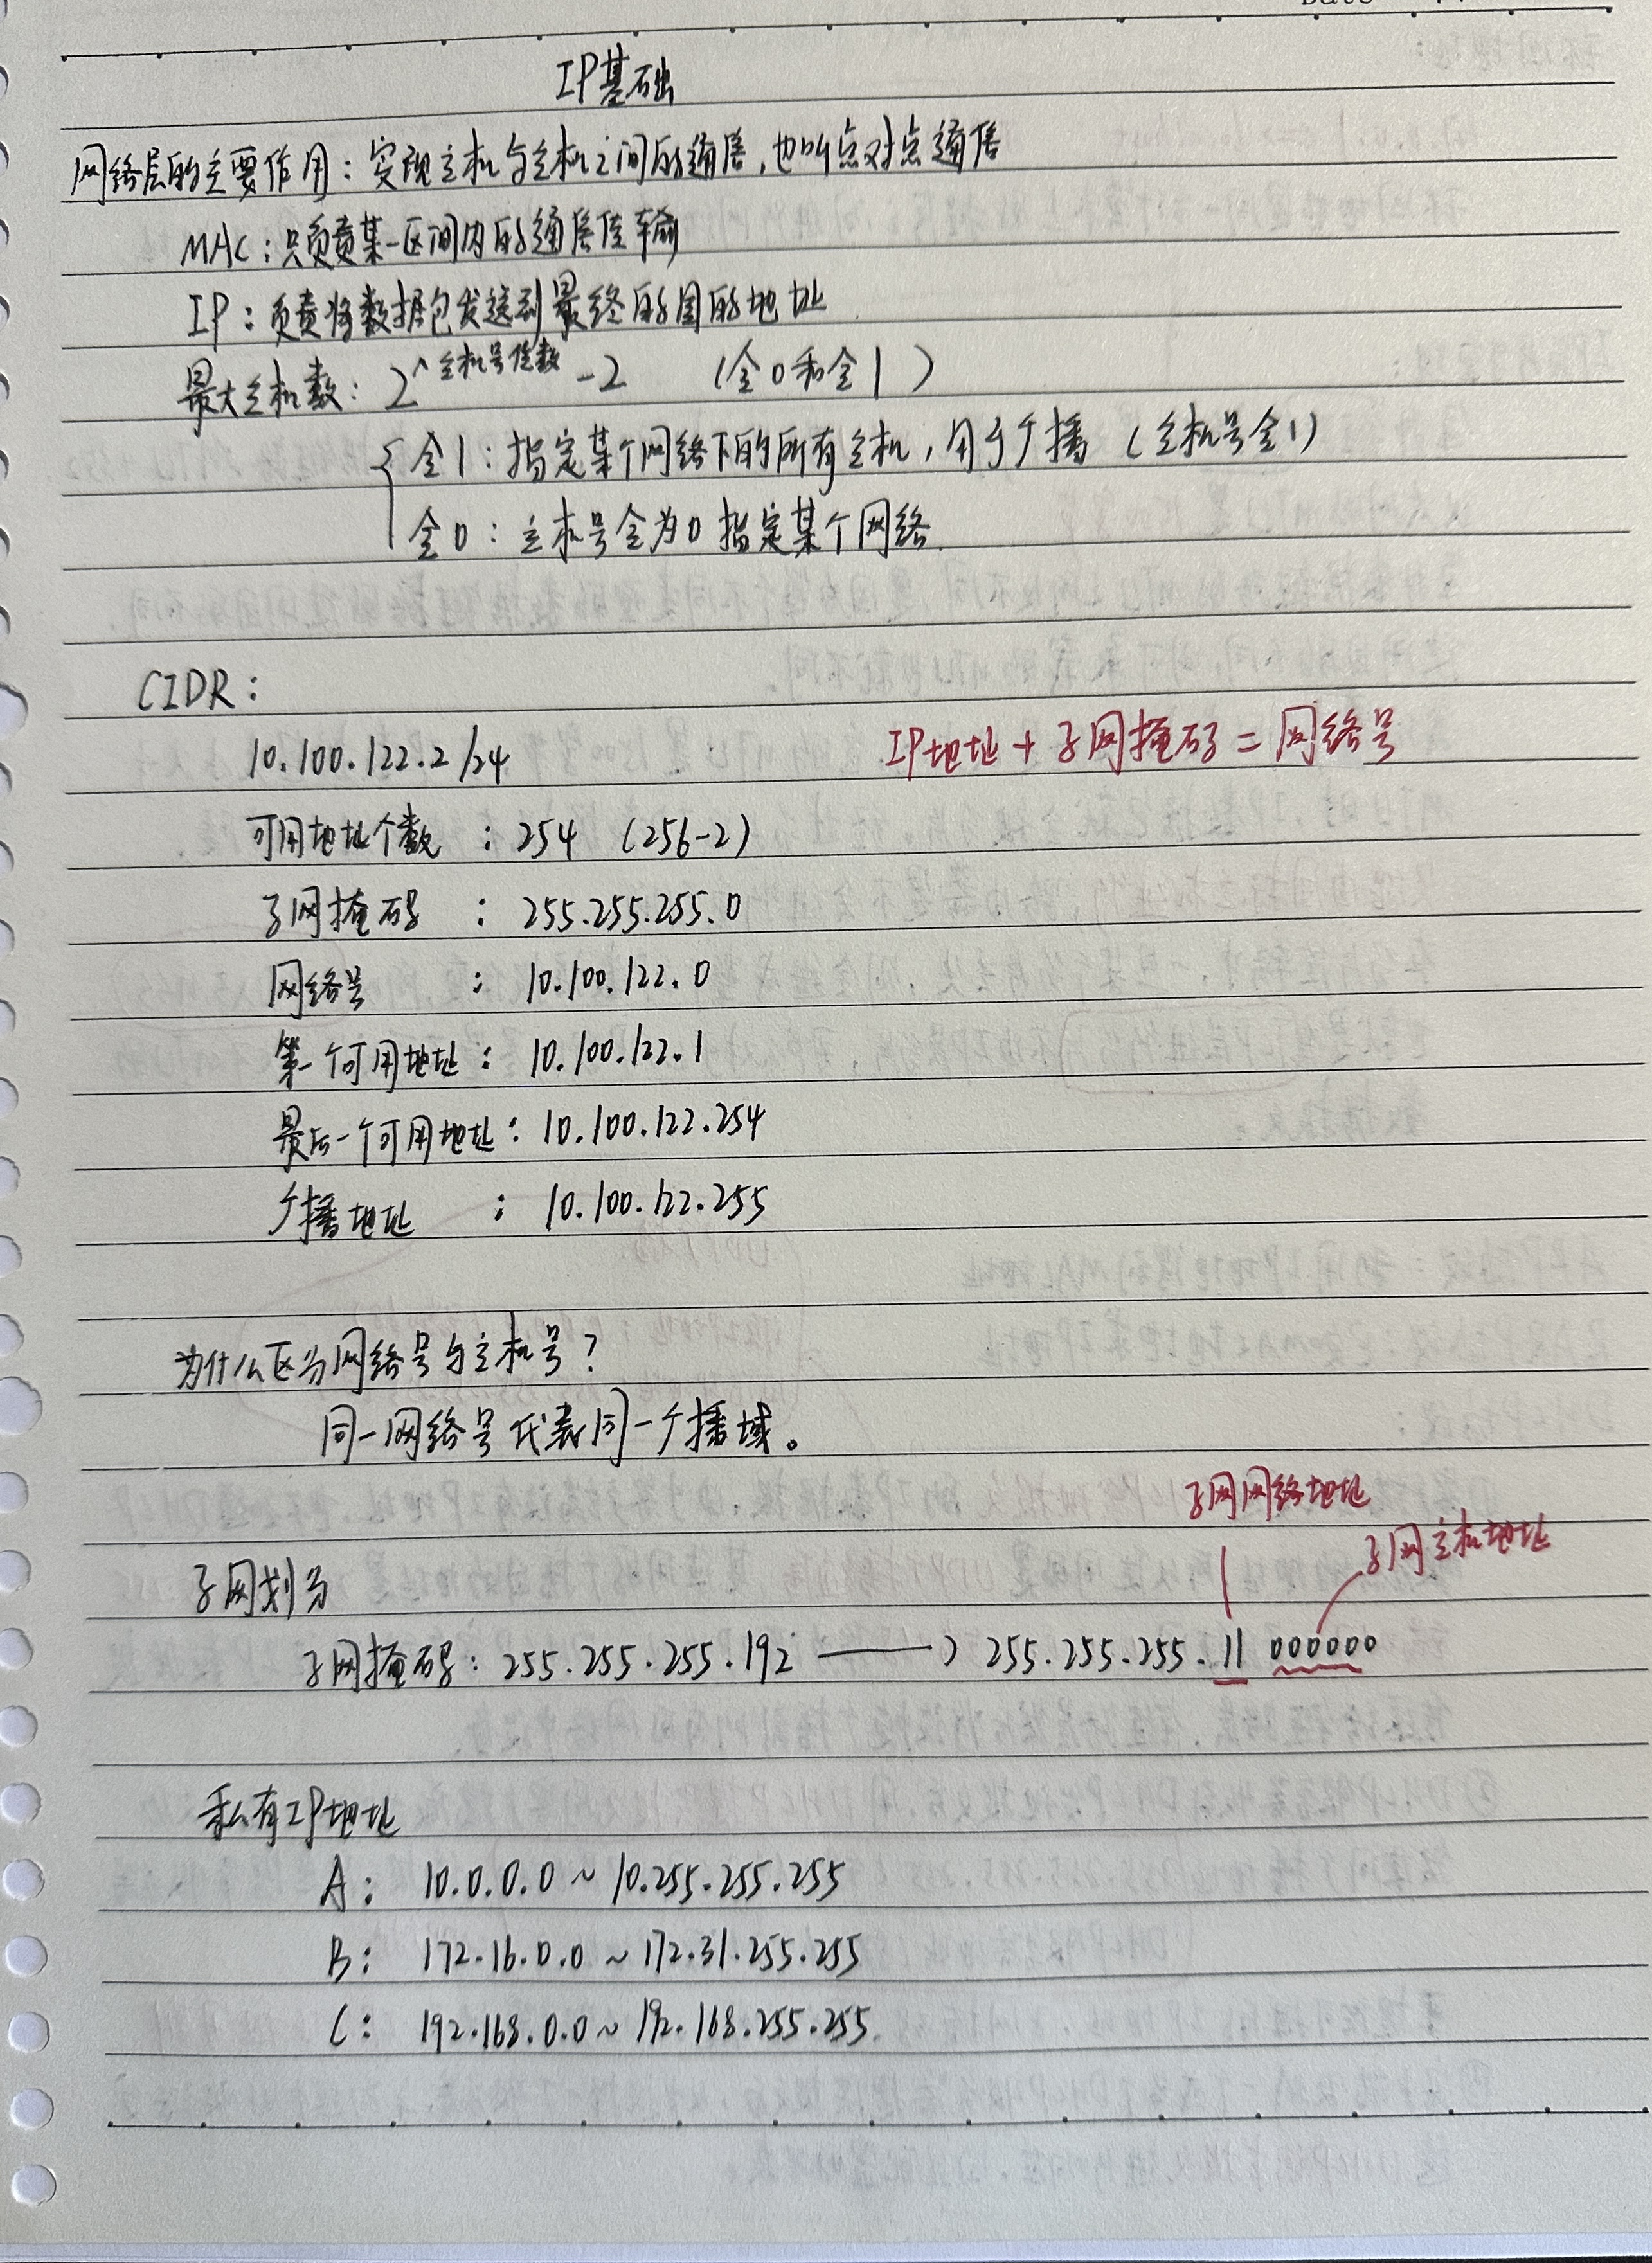 IP基础
网络层的主要作用：实现主机与主机之间的通信，也叫点对点通信
MAC：只负责某一区间内的通信传输
IP：负责将数据包发送到最终的目的地址
最大主机数：2^主机号位数 -2 （全0和全1）
全1：指定某个网络下的所有主机，用于广播（主机号全1）
全0：主机号全为0 指定某个网络
CIDR：
10.100.122.2/24
IP地址 + 子网掩码 = 网络号
可用地址个数 ： 254 （256-2）
子网掩码 ： 255.255.255.0
网络号 ： 10.100.122.0
第一个可用地址： 10.100.122.1
最后一个可用地址： 10.100.122.254
广播地址 ： 10.100.122.255
为什么区分网络号与主机号？
同一网络号代表同一广播域。
子网网络地址
子网主机地址
子网划分
子网掩码：255.255.255.192 ——> 255.255.255.11 000000
私有IP地址
A： 10.0.0.0 ~ 10.255.255.255
B： 172.16.0.0 ~ 172.31.255.255
C： 192.168.0.0 ~ 192.168.255.255